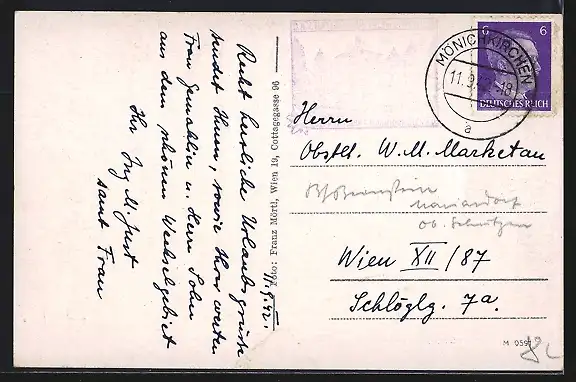 Recht herzliche Urlaubsgrüsse
sendet Ihnen, sowie Ihrer werten
Frau Gemahlin u. Herrn Sohn
aus dem schönen Wechselgebiet
Ihr Ing M. Just
samt Frau
11.9.42.
Foto: Franz Mörtl, Wien 19, Cottagegasse 96
MÖNICHKIRCHEN
11.9.
a
6 6
DEUTSCHES REICH
Herrn
Obstlt. W. M. Marketau
Wien XII/87
Schlöglg. 7a.
M 959